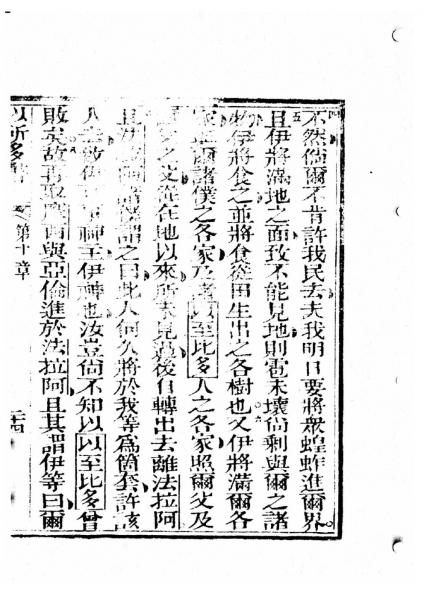 不然倘爾不肯許我民去夫我明日要將眾蝗蚱進爾界
且伊將滿地之面致不能見地則雹未壞尙剩與爾之諸
物伊將食之並將食從田生出之各樹也又伊將滿爾各
家與爾諸僕之各家及諸以至比多人之各家照爾父及
爾父之父從在地以來所未見過後自轉出去離法拉阿
且法拉阿諸僕謂之曰此人何久將於我等為箇套許該
人去致伊神主伊神也汝豈尙不知以以至比多曾
敗矣故再取摩西與亞倫進於法拉阿且其謂伊等曰爾
以所多
第十章
二十四